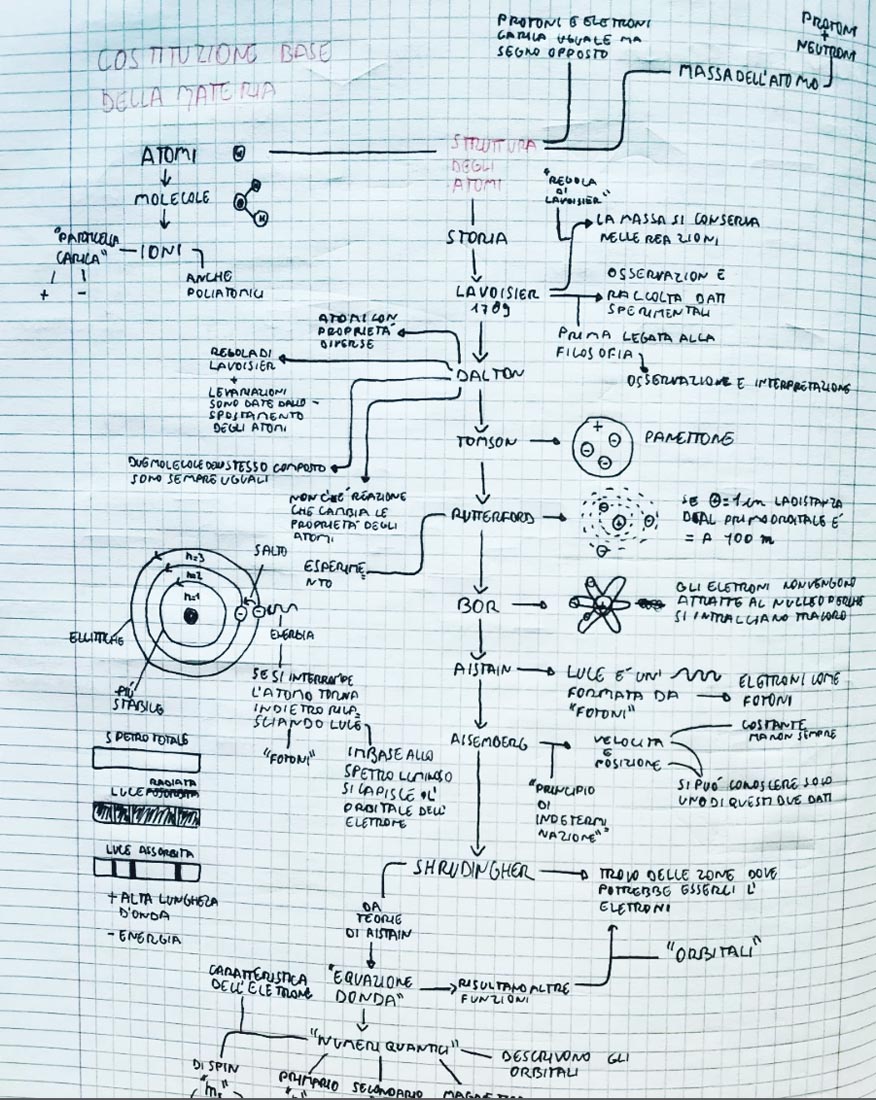 PROTONI E ELETRONI
CARICA UGUALE MA
SEGNO OPPOSTO
PROTONI
+
NEUTRONI
MASSA DELL'ATOMO
COSTITUZIONE BASE
DELLA MATERIA
ATOMI
STRUTTURA
DEGLI
ATOMI
MOLECOLE
H
"PARTICELLA
CARICA"
IONI
+ -
ANCHE
POLIATOMICI
STORIA
"REGOLA
DI
LAVOISIER"
LA MASSA SI CONSERVA
NELLE REAZIONI
LAVOISIER
1789
OSSERVAZION E
RACCOLTA DATI
SPERIMENTALI
PRIMA LEGATA ALLA
FILOSOFIA
OSSERVAZIONE E INTERPRETAZIONE
ATOMI CON
PROPRIETÀ
DIVERSE
REGOLA DI
LAVOISIER
+
LE VARIAZIONI
SONO DATE DALLO
SPOSTAMENTO
DEGLI ATOMI
DALTON
DUE MOLECOLE DELLO STESSO COMPOSTO
SONO SEMPRE UGUALI
NON C'È REAZIONE
CHE CAMBIA LE
PROPRIETÀ DEGLI
ATOMI
TOMSON
PANETTONE
RUTTERFORD
SE = 1 cm LA DISTANZA
DAL PRIMO ORBITALE E'
= A 100 m
ESPERIME
NTO
BOR
GLI ELETRONI NON VENGONO
ATTRATTE AL NUCLEO PERCHE
SI INTRALCIANO TRA LORO
n=3
n=2
n=1
SALTO
ELLITTICHE
ENERGIA
PIÙ
STABILE
SE SI INTERROMPE
L'ATOMO TORNA
INDIETRO RILA
SCIANDO LUCE
"FOTONI"
IN BASE ALLO
SPETRO LUMINOSO
SI CAPISCE L'
ORBITALE DELL'
ELETRONE
AISTAIN
LUCE E' UN'
FORMATA DA
"FOTONI"
ELETRONI COME
FOTONI
AISEMBERG
VELOCITA
E
POSIZIONE
COSTANTE
MA NON SEMPRE
SI PUÒ CONOSCERE SOLO
UNO DI QUESTI DUE DATI
"PRINCIPIO
DI
INDETERMI
NAZIONE"
SPETRO TOTALE
RADIATA
LUCE
LUCE ASSORBITA
+ ALTA LUNGHEZA
D'ONDA
- ENERGIA
SHRUDINGHER
TROVO DELLE ZONE DOVE
POTREBBE ESSERCI L'
ELETRONI
DA
TEORIE
DI AISTAIN
"ORBITALI"
"EQUAZIONE
DONDA"
RISULTANO ALTRE
FUNZIONI
CARATTERISTICA
DELL'ELETRONE
"NUMERI QUANTICI"
DESCRIVONO GLI
ORBITALI
DI SPIN
PRIMARIO
SECONDARIO